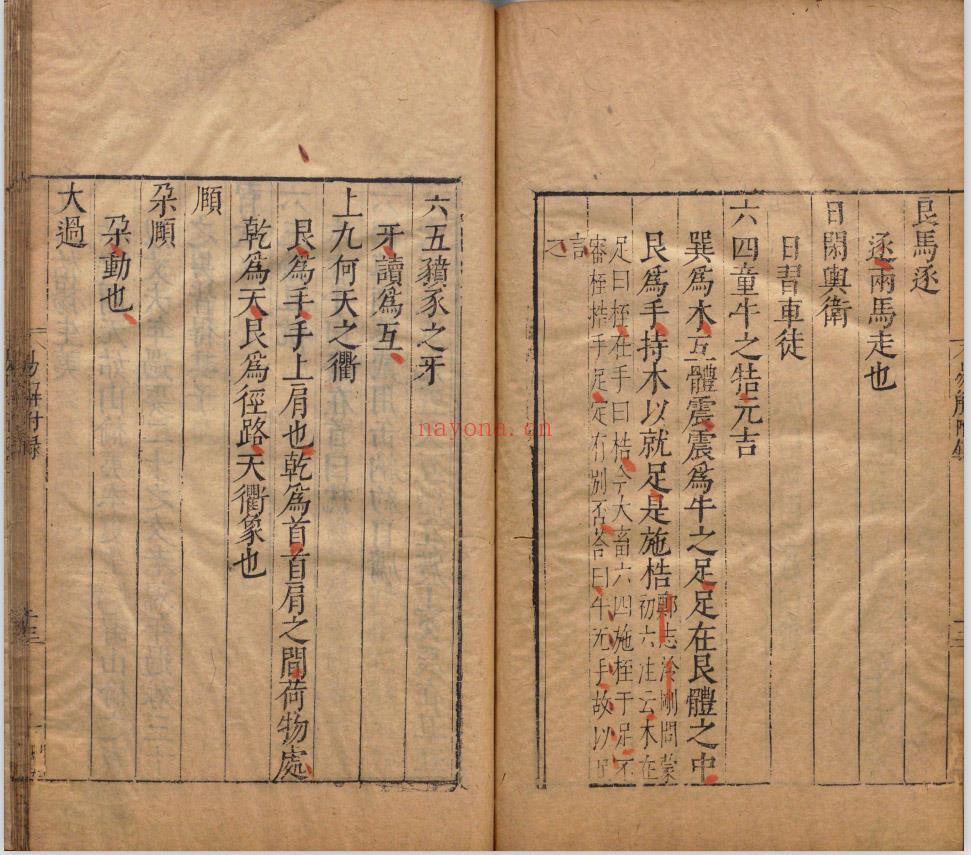 良馬逐
逐兩馬走也
日閑輿衛
日習車徒
六四童牛之牿元吉
巽爲木互體震震爲牛之足足在艮體之中
艮爲手持木以就足是施梏
鄭志泠剛問蒙
初六注云木在
足曰桎在手曰梏今大畜六四施桎于足不
審桎梏手足定有別否答曰牛无手故以足
言
之
六五豶豕之牙
牙讀爲互
上九何天之衢
艮爲手手上肩也乾爲首首肩之間荷物處
乾爲天艮爲徑路天衢象也
頤
朶頤
朶動也
大過
易解附錄
十三
nayona.cn